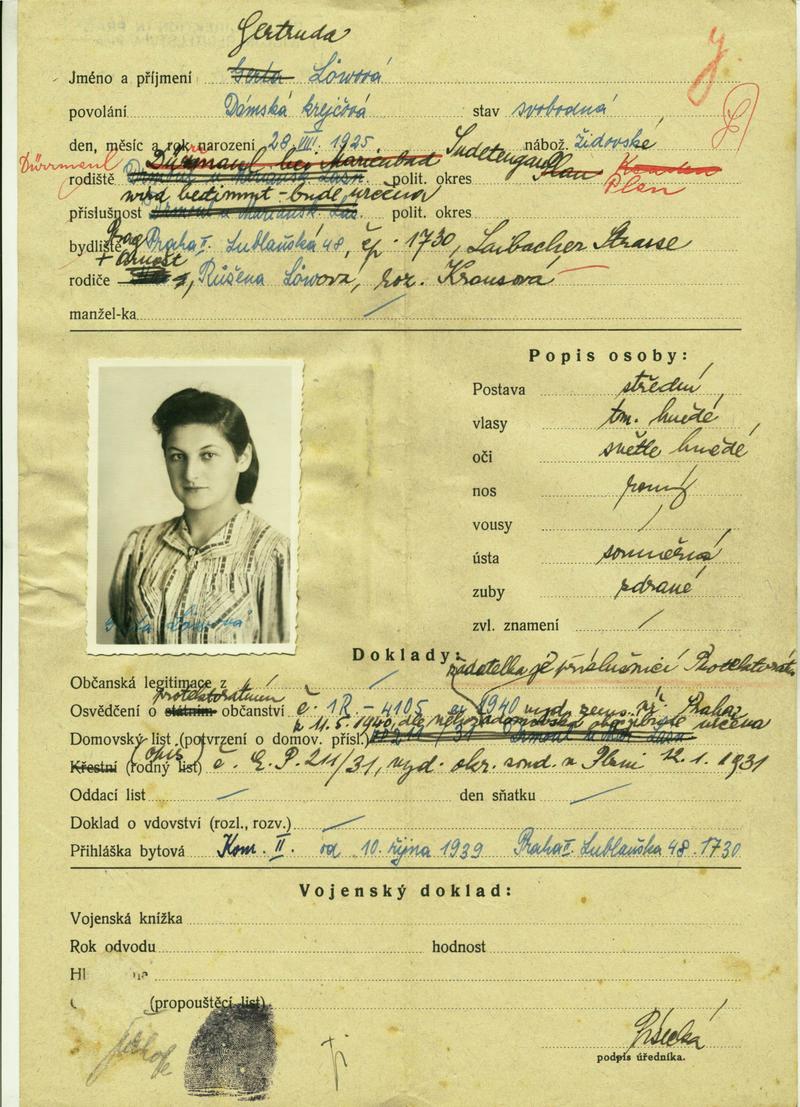 Gertruda
Jméno a příjmení Gerta Löwová
povolání Dámská krejčová stav svobodná
den, měsíc a rok narození 28. VIII. 1925 nábož. židovské
Dürrmaul Dürrmaul bei Marienbad Sudetengau
rodiště polit. okres Plan Plan
wird bestimmt - bude určena
příslušnost polit. okres
Prag
bydliště Praha II. Lublaňská 48, čp. 1730, Laibacher Strasse
+ Arnošt
rodiče Růšena Löwová, roz. Krausová
manžel-ka
Popis osoby:
Postava střední
vlasy tm. hnědé
oči světle hnědé
nos rovný
vousy
ústa souměrná
zuby zdravé
zvl. znamení
Gerta Löwová
Doklady:
žadatelka je příslušnicí Protektorátu
Občanská legitimace z
protektorátním
Osvědčení o státním občanství č. 1R - 4105 1940 vyd. zems. úř. Praha
z 11.5.1940, dle něhož domovská obec bude určena
Domovský list (potvrzení o domov. přísl.)
opis
Křestní (rodný list) č. E. P. 211/31, vyd. okr. soud. v Plané 12. 1. 1931
Oddací list den sňatku
Doklad o vdovství (rozl., rozv.)
Přihláška bytová Kom. II. od 10. října 1939 Praha II. Lublaňska 48. 1730
Vojenský doklad:
Vojenská knížka
Rok odvodu hodnost
(propouštěcí list)
podpis úředníka.